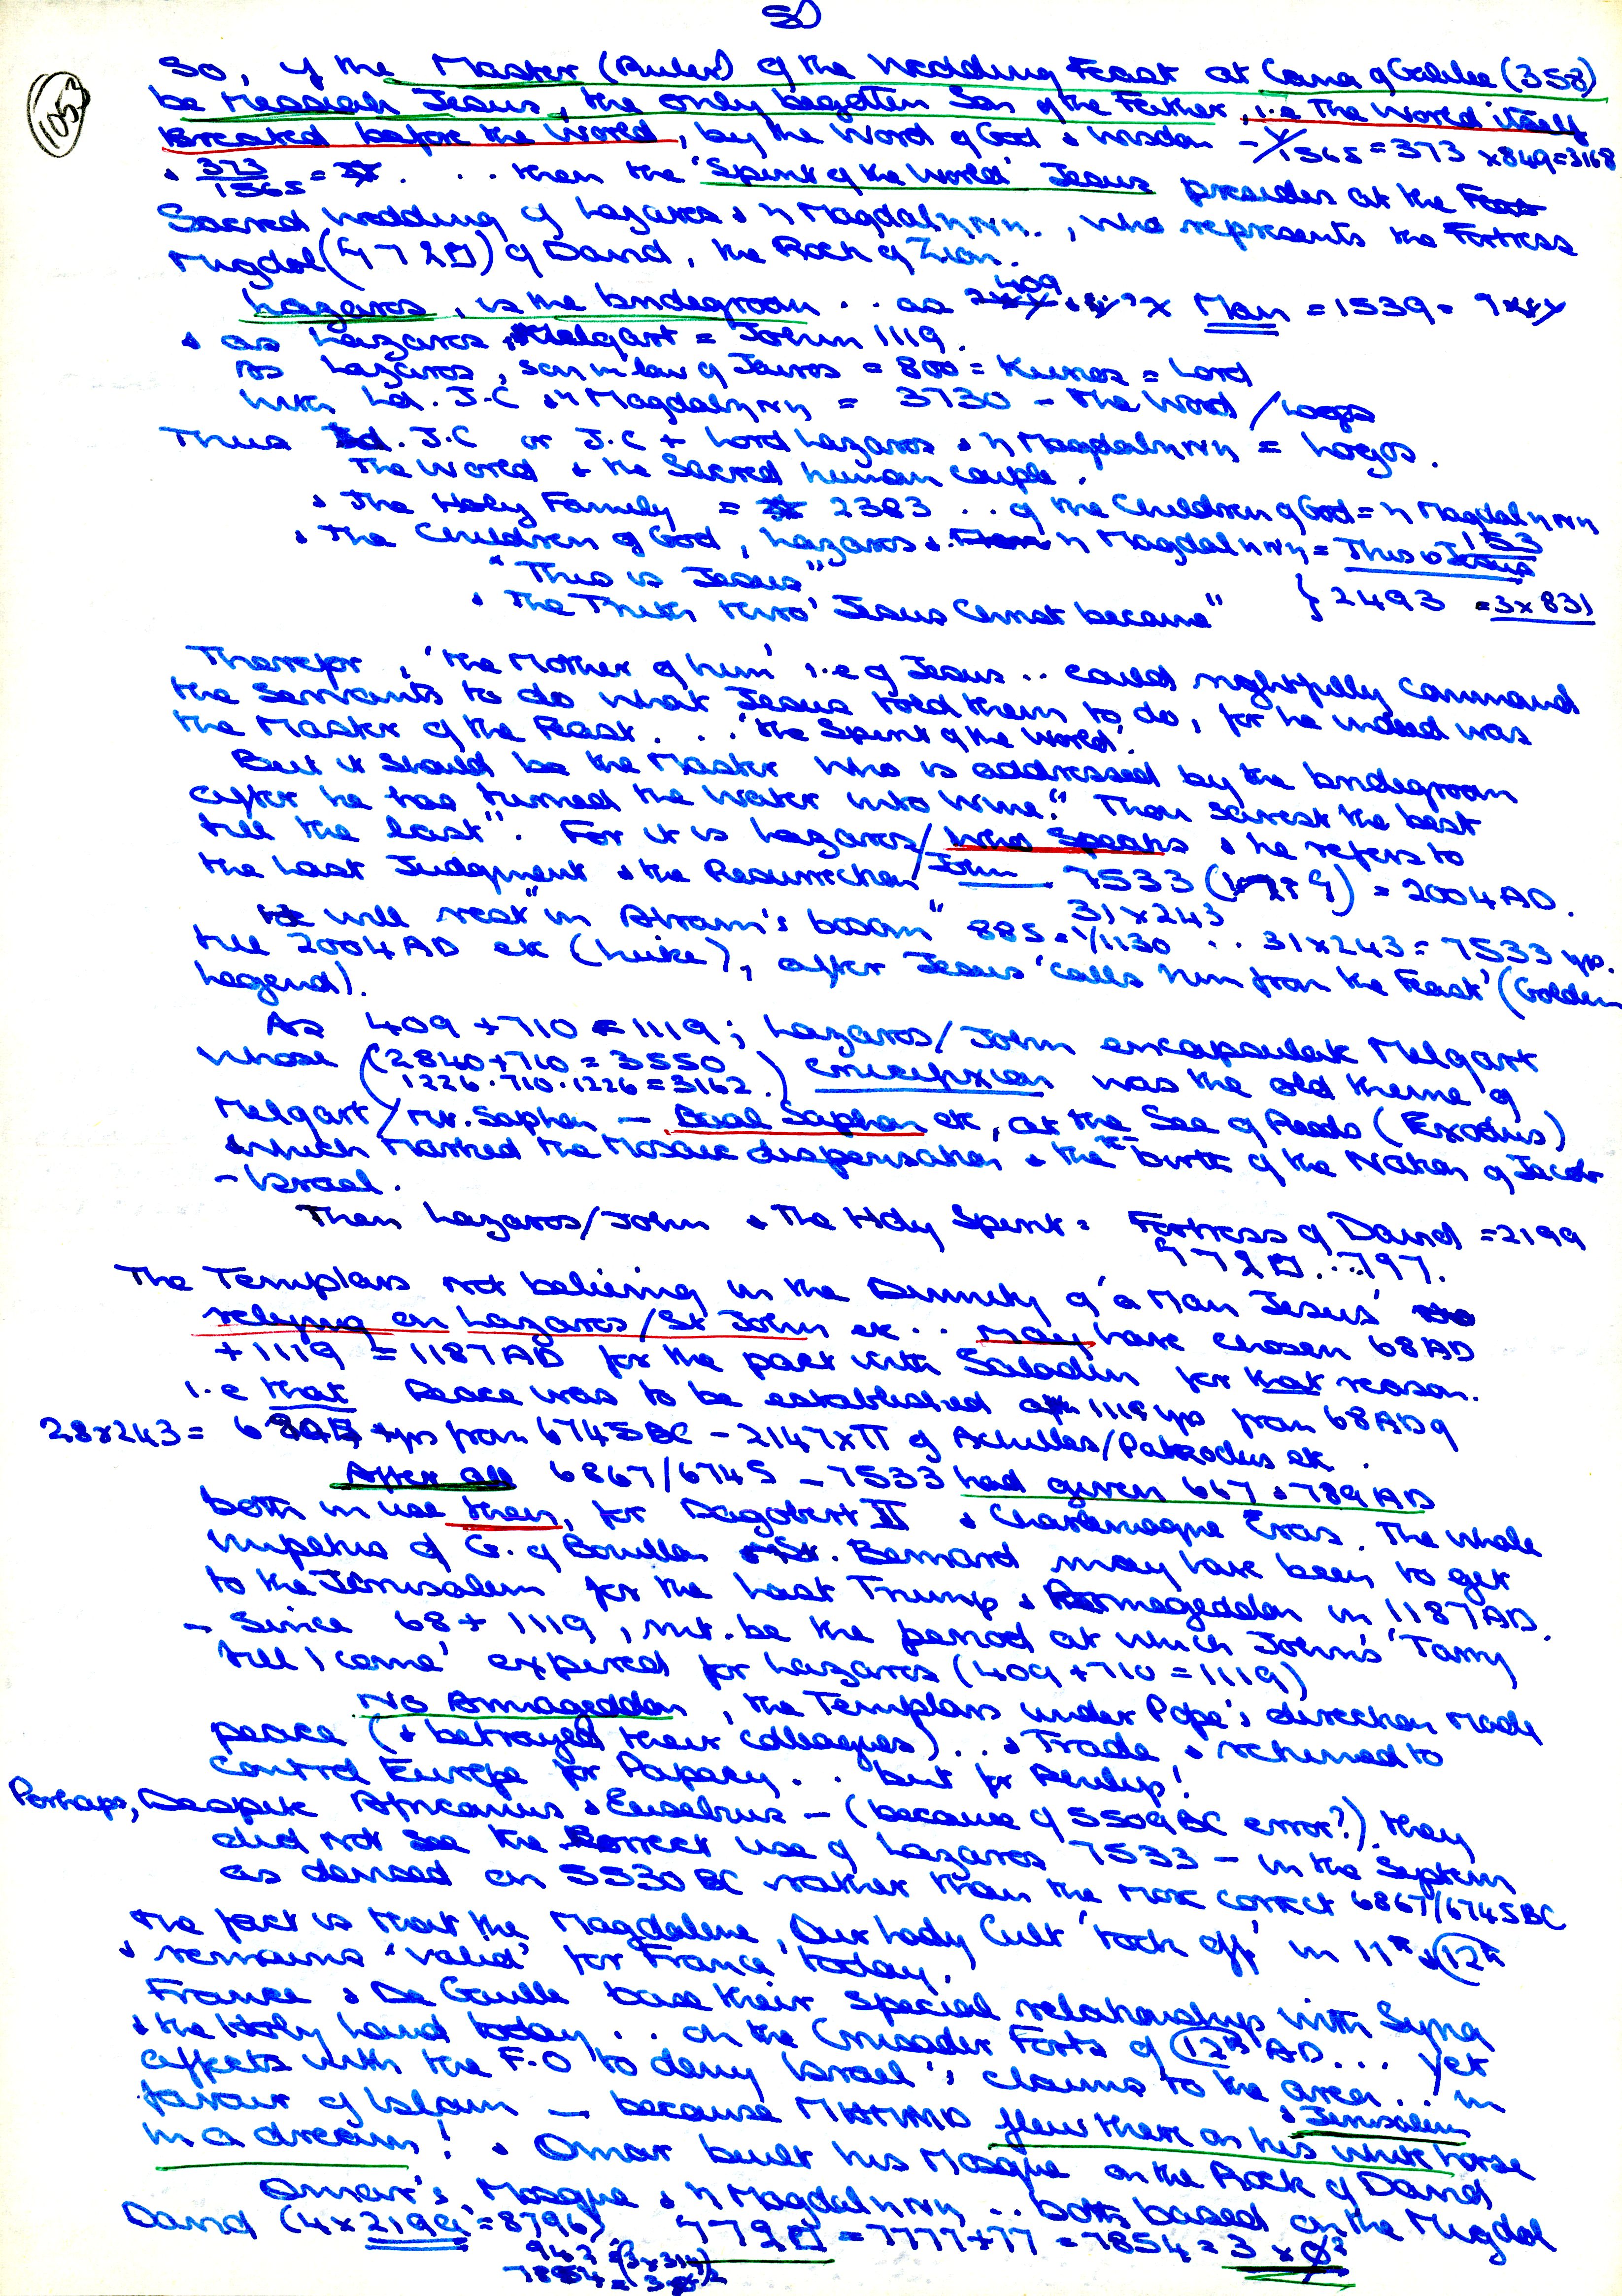 50
1053
So, if the Master (Ruler) of the Wedding Feast at Cana of Galilee (358)
be Messiah Jesus, the only begotten Son of the Father, i.e The World itself
Created before the World, by the Word of God & Wisdom - 1/1565 = 373 x 849 = 3168
& 373/1565 = . . . then the 'Spirit of the World' Jesus presides at the
Sacred Wedding of Lazaros & η Magdalηνη., who represents the Fortress
Migdal ( ) of David, the Rock of Zion.
Lazaros, is the bridegroom . . as 409 x Man = 1539 =
& as Lazaros, Melqart = John 1119.
As Lazaros, son in law of Jairos = 800 = Kurios = Lord
with Ld. J.C & η Magdalηνη = 3730 - The Word / Logos
Thus Ld. J.C or J.C + Lord Lazaros & η Magdalηνη = Logos.
The World & the Sacred human couple.
& The Holy Family = 2383 . . of the Children of God = η Magdalηνη
& The Children of God, Lazaros & η Magdalηνη = This is Jesus 153
"This is Jesus"
& "The Truth thro' Jesus Christ became" } 2493 = 3 x 831
Therefor, 'the Mother of him' i.e of Jesus . . could rightfully command
the Servants to do what Jesus told them to do, for he indeed was
the Master of the Feast. . . 'the Spirit of the World'.
But it should be the Master who is addressed by the bridegroom
after he has turned the Water into Wine. "Thou savest the best
till the last". For it is Lazaros/John Who Speaks & he refers to
the Last Judgment & the Resurrection 7533 ( ) = 2004 AD.
31 x 243
He will rest "in Abram's bosom" 885 = 1/1130 . . 31 x 243 = 7533 yrs.
till 2004 AD etc (Luke), after Jesus 'calls him from the Feast' (Golden
Legend).
As 409 + 710 = 1119; Lazaros/John encapsulate Melqart
whose (2840 + 710 = 3550
1226 . 710 . 1226 = 3162.) Crucifixion was the old theme of
Melqart / Mt. Saphon - Baal Saphon etc, at the Sea of Reeds (Exodus)
which marked the Mosaic dispensation & the birth of the Nation of Jacob
- Israel.
Then Lazaros/John & The Holy Spirit = Fortress of David = 2199
. . 797.
The Templars not believing in the Divinity of 'a Man Jesus'
relying on Lazaros/St John etc . . may have chosen 68 AD
+ 1119 = 1187 AD for the pact with Saladin for that reason.
i.e that Peace was to be established after 1119 yrs from 68 AD of
28 x 243 = 6804 yrs from 6745 BC - 2147 x π of Achilles/Patroclus etc.
After all 6867/6745 - 7533 had given 667 & 789 AD
both in use then, for Dagobert II & Charlemagne Eras. The whole
impetus of G. of Bouillon & St. Bernard may have been to get
to the Jerusalem for the Last Trump & Armageddon in 1187 AD.
- Since 68 + 1119, mt. be the period at which John's 'Tarry
till I come' expired for Lazaros (409 + 710 = 1119)
No Armageddon, the Templars under Pope's direction made
peace (& betrayed their colleagues) . . & Trade & returned to
Control Europe for Papacy . . but for Philip!
Perhaps, Despite Africanus & Eusebius - (because of 5509 BC error?) they
did not see the Correct use of Lazaros 7533 - in the System
as devised on 5530 BC rather than the more correct 6867/6745 BC
The fact is that the Magdalene, Our Lady Cult 'took off' in 11th & 12th
& remains 'valid' for France today.
France & De Gaulle base their special relationship with Syria
& the Holy Land today . . on the Crusader Forts of 12th AD . . . yet
affects with the F.O to deny Israel's claims to the area . . in
favour of Islam - because flew there on his white horse
& Jerusalem
in a dream! & Omar built his Mosque on the Rock of David
Omar's Mosque & η Magdalηνη . . both based on the Migdol
David (4 x 2199 = 8796) = 7777 + 77 = 7854 = 3
942 (3 x 314)
7854 =